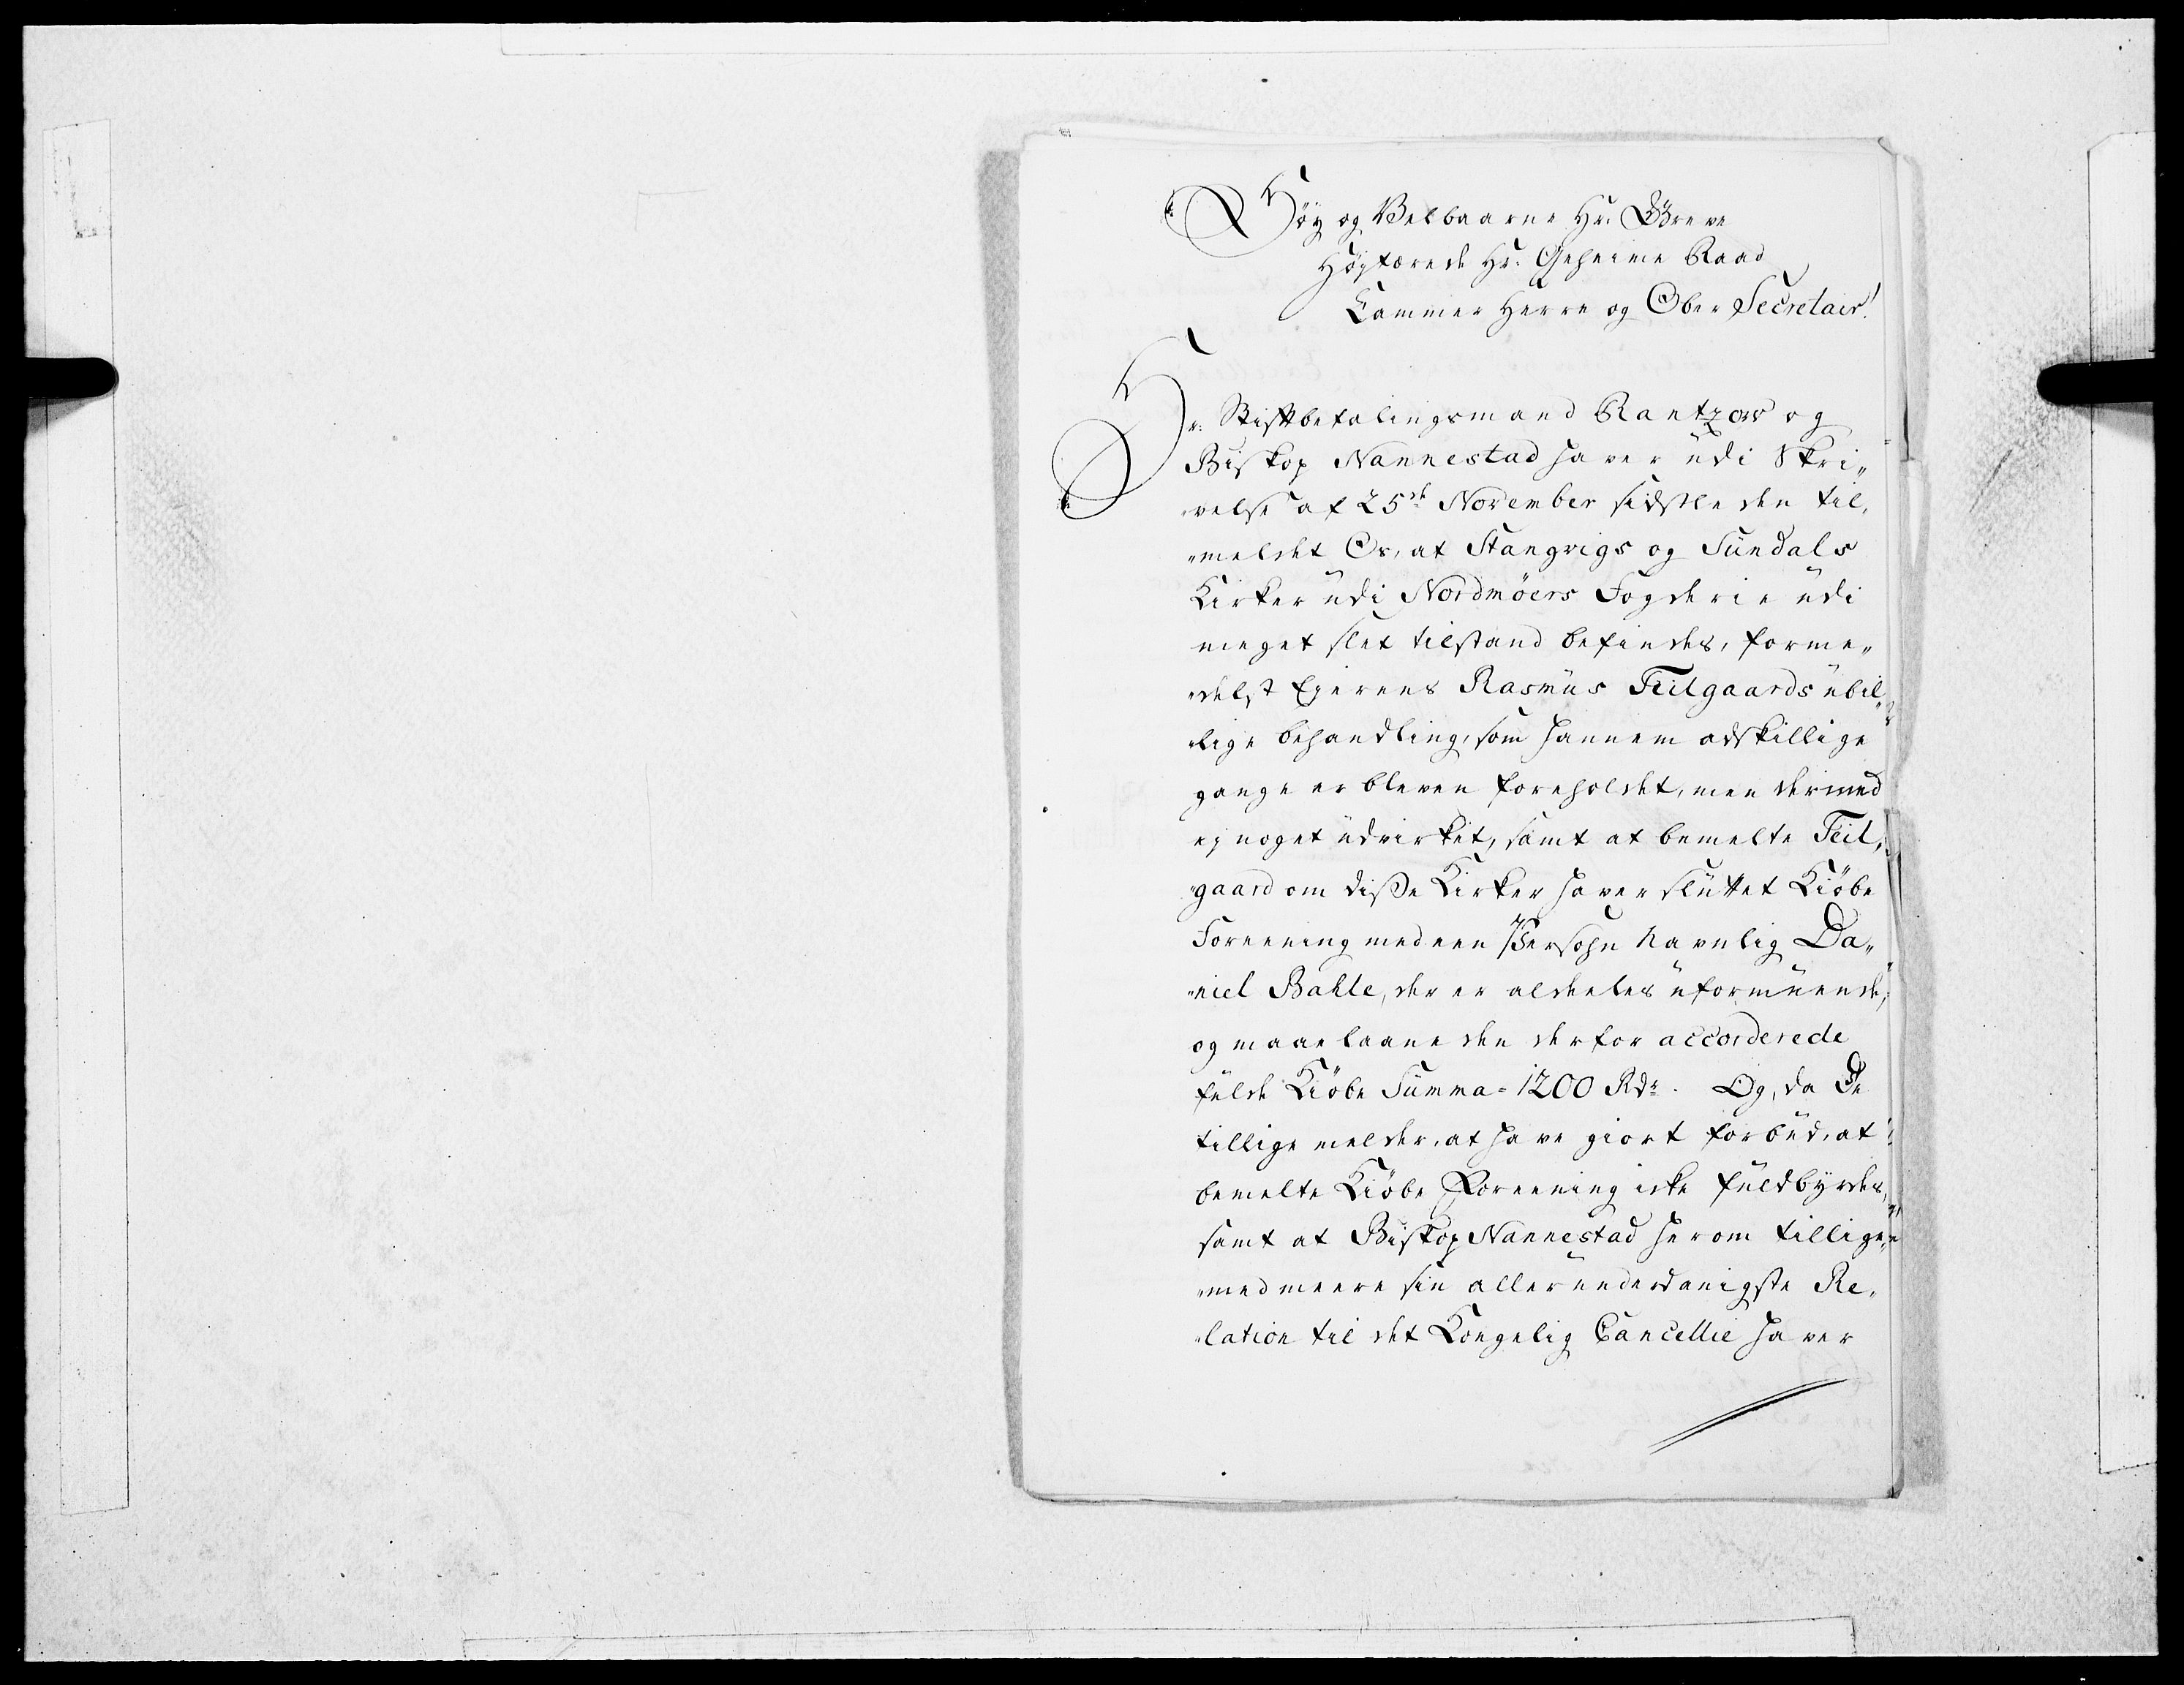 Höy og Velbaarne Hr: Greve
Höystærede Hr: Geheime Raad
Cammer Herre og Ober Secretair!
Hr: Stiftbefalingsmand Rantzow og
Biskop Nannestad haver udi Skri„
„velse af 25de November sidstleden til„
„meldet Os, at Stangvigs og Sundals
Kirker udi Nordmöers Fogderie udi
meget slet tilstand befindes, forme„
„delst Eyerens Rasmus Feilgaards ubil„
„lige behandling, som hannem adskillige
gange er bleven foreholdet, men dermed
ej noget udvirket, samt at bemelte Feil„
„gaard om disse Kirker haver sluttet Kiöbe
Foreening med een Persohn navnlig Da„
„niel Bahle, der er aldeeles uformuende,
og maae laane den derfor accorderede
fulde Kiöbe Summa = 1200 Rdr. Og, da De
tillige melder, at have giort forbud, at
bemelte Kiöbe Foreening icke fuldbyrdes,
samt at Biskop Nannestad herom tillige„
„med meere sin allerunderdanigste Re„
„lation til det Kongelig Cancellie haver